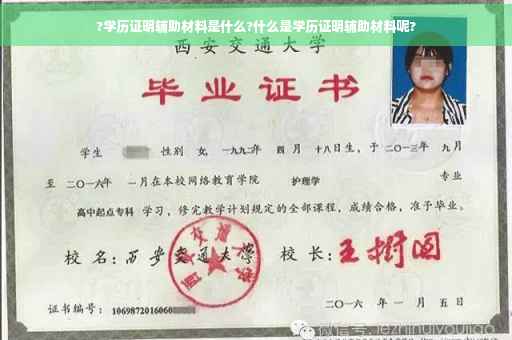 ?学历证明辅助材料是什么?什么是学历证明辅助材料呢?
西安交通大学
毕业证书
学生 性别 女, 一九九二年 四月 十八日生, 于 二〇一三年 九月
至 二〇一六年 一月在本校网络教育学院 护理学 专业
高中起点专科 学习, 修完教学计划规定的全部课程, 成绩合格, 准予毕业。
校 名: 西安交通大学 校 长: 王树国
西安交通大学
证书编号: 1069872016060
二〇一六 年 一 月 五 日
微信号: jiezhinuiyoujiao